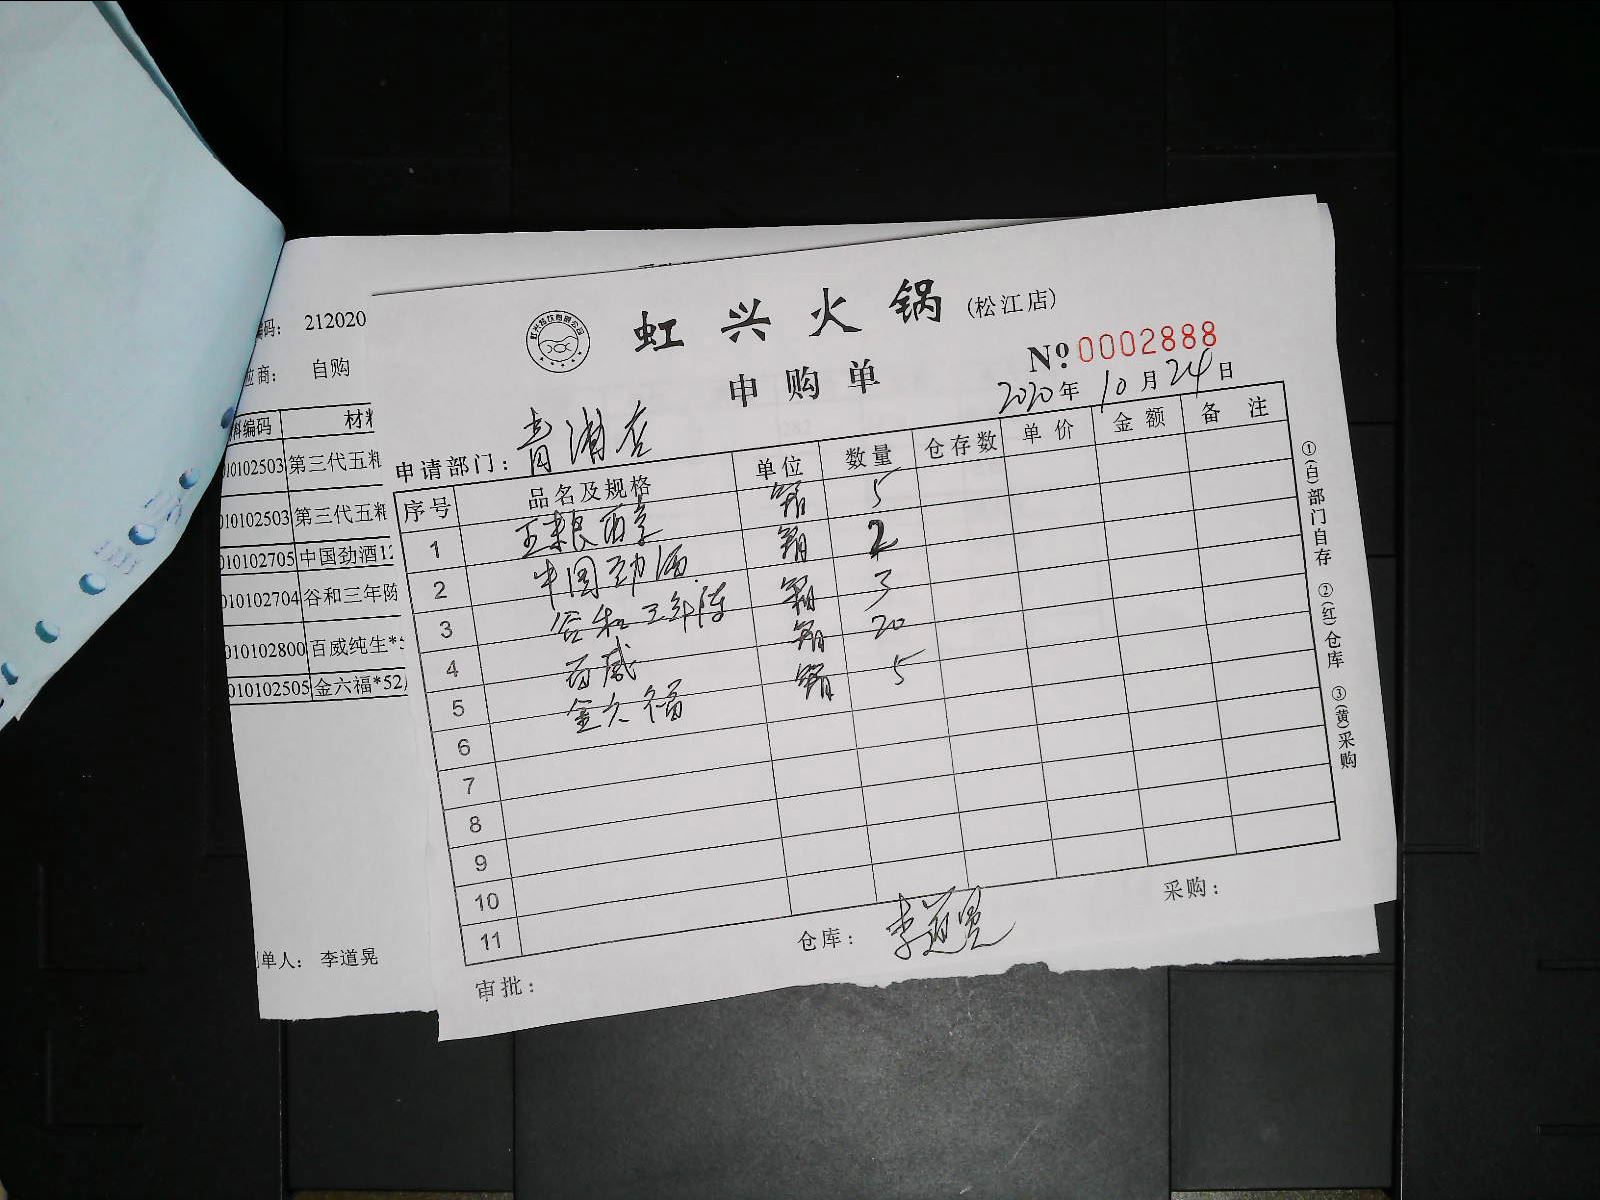 虹兴火锅(松江店)
申购单
№ 0002888
2020年10月24日
申请部门：青浦店
序号 品名及规格 单位 数量 仓存数 单价 金额 备注
1 五粮西享 箱 5
2 中国劲酒 箱 2
3 谷和三年陈 箱 3
4 百威 箱 20
5 金六福 箱 5
6
7
8
9
10
11
审批： 仓库：李道晃 采购：
①(白)部门自存 ②(红)仓库 ③(黄)采购
编码： 212020
应商： 自购
料编码 材料
010102503 第三代五粮
010102503 第三代五粮
010102705 中国劲酒12
010102704 谷和三年陈
010102800 百威纯生*5
010102505 金六福*52
制单人： 李道晃